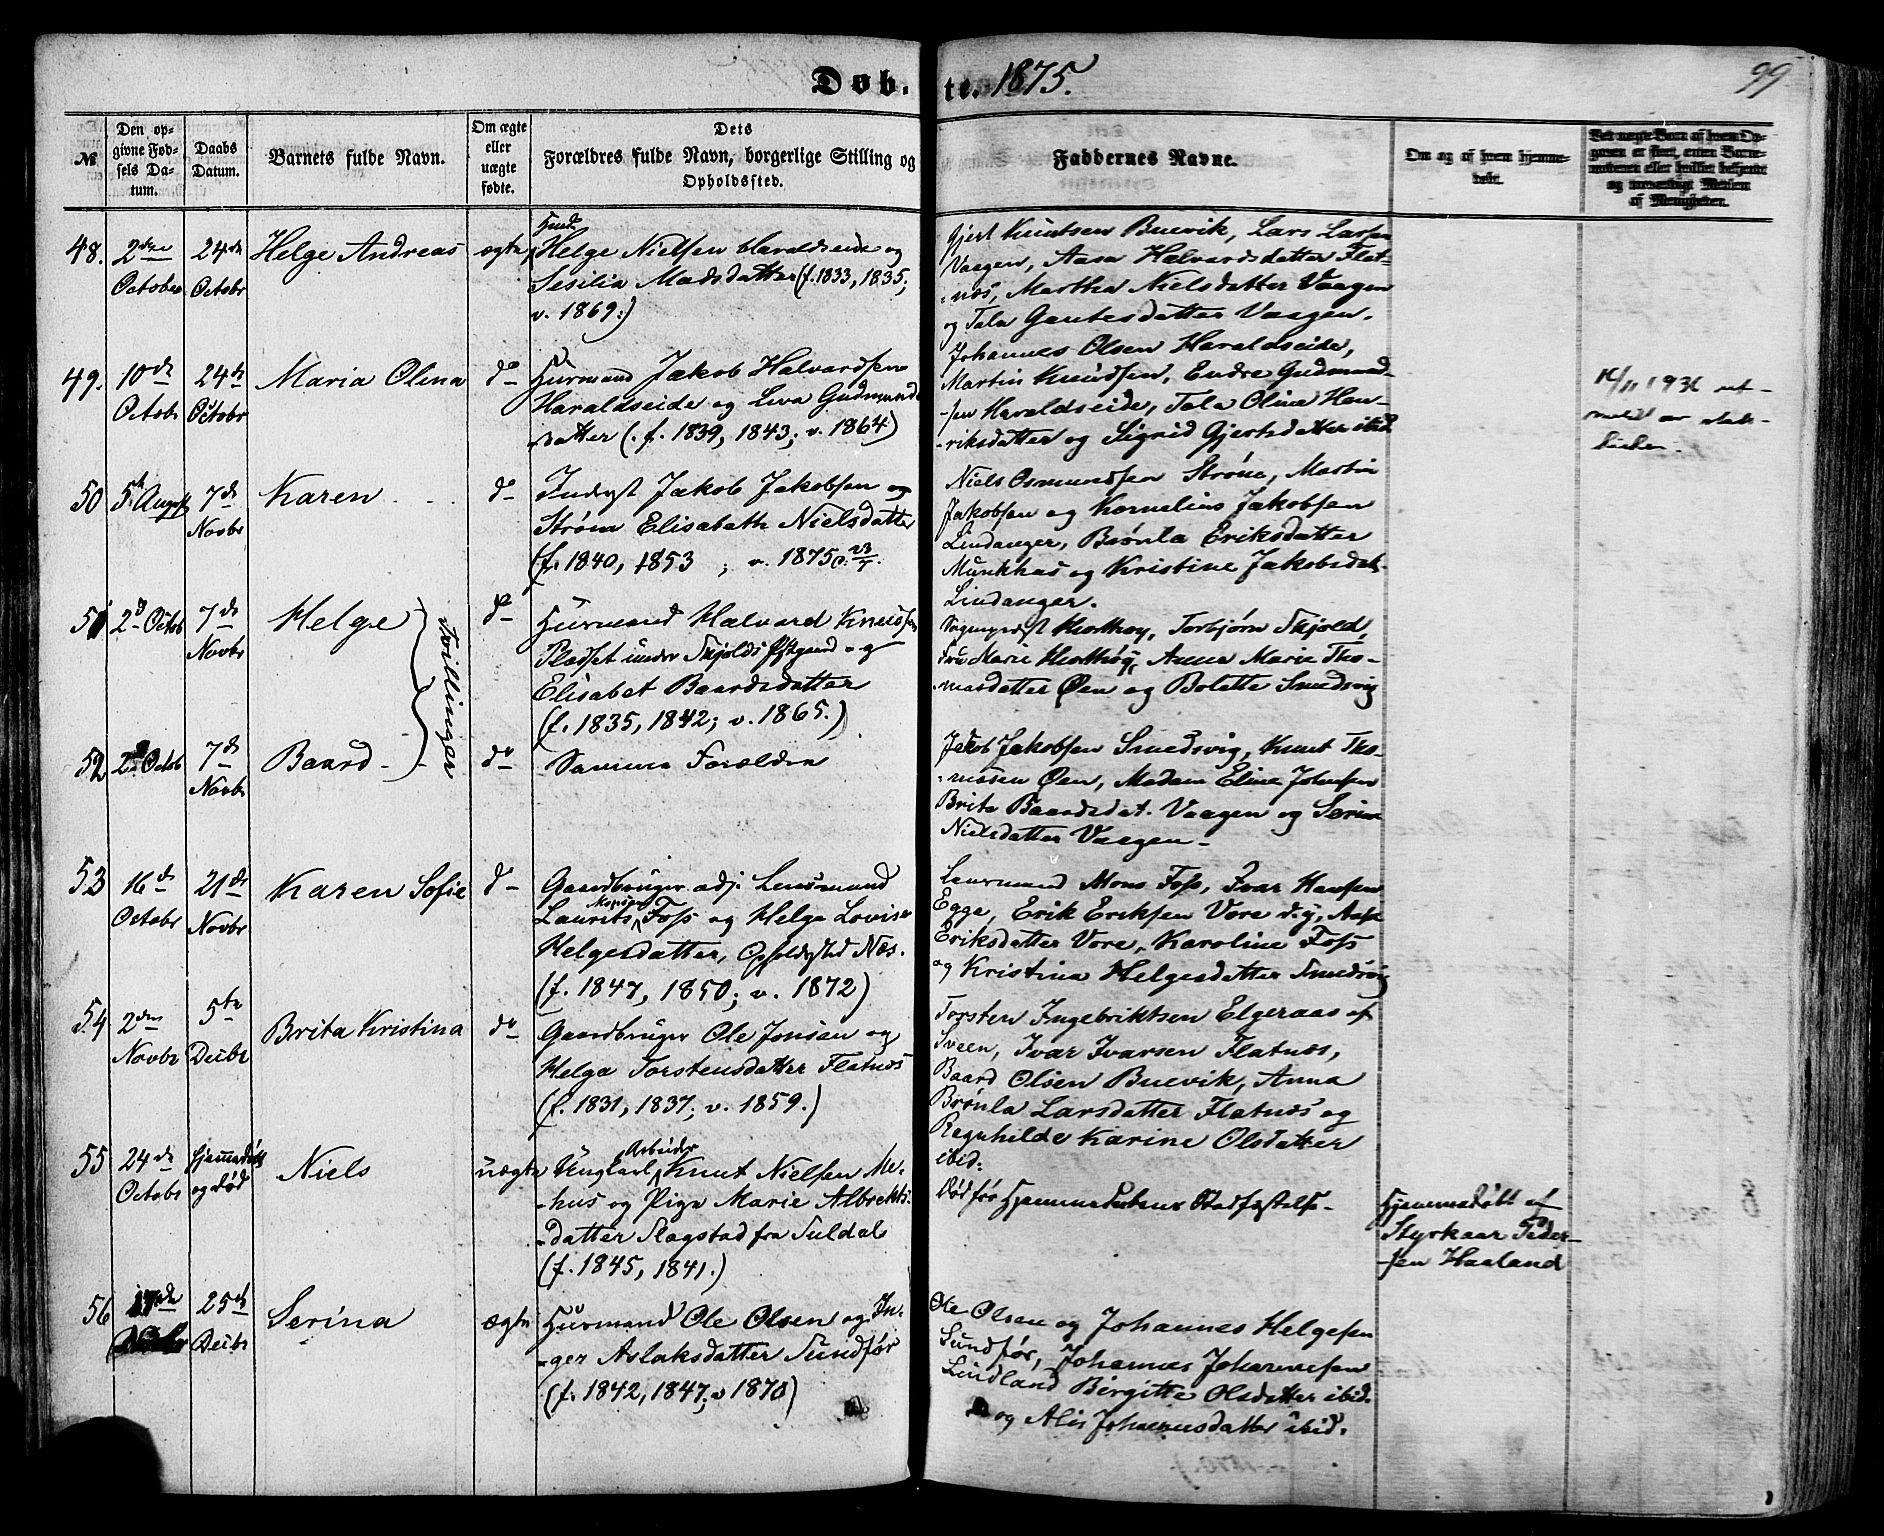 Døb. te. 1875.
99
No
Den op-
givne Fød-
sels Da-
tum.
Daabs
Datum.
Barnets fulde Navn.
Om ægte
eller
uægte
fødte.
Dets
Forældres fulde Navn, borgerlige Stilling og
Opholdssted.
Faddernes Navne.
Om og af hvem hjemme-
døbt.
48.
2den
October
24de
Octobr
Helge Andreas
ægte
Helge Nielsen Haraldseide og
Sesilia Madsdatter (f. 1833, 1835;
v. 1869.)
Gjert Knutsen Buevik, Lars Larsen
Vaagen, Aasa Halvardsdatter Flat-
-næs, Martha Nielsdatter Vaagen
og Tala Gautesdatter Vaagen.
49.
10de
Octobr
24de
Octobr
Maria Olina
do
Huusmand Jakob Halvardsen
Haraldseide og Eva Gudmunds
datter (. f. 1839, 1843; v. 1864)
Johannes Olsen Haraldseide,
Martin Knudsen, Endre Gudmund-
-sen Haraldseide, Tala Oline Hen-
-riksdatter og Sigrid Gjertsdatter ibid
1931 ut-
meldt av stats-
kirken.
50
5te August
7de
Novbr
Karen
do
Inderst Jakob Jakobsen og
Strøm Elisabeth Nielsdatter
(f. 1840, 1853 ; v. 1875
Niels Osmundsen Strøm, Martin
Jakobsen og Kornelius Jakobsen
Lindanger, Brønla Eriksdatter
Munkhus og Kristine Jakobsdat.
Lindanger.
51
2d Octob
7de
Novbr
Helge
Tvillinger
do
Huusmand Halvard Knudsen
Pladset under Skjolds Pstgaard og
Elisabet Baardsdatter
(f. 1835, 1842; v. 1865.)
Sogneprest Holthoy, Torbjørn Skjold,
Fru Marie Holthøy, Anna Marie Tho-
-masdatter Øen og Bolette Smedsvig
52
2d Octob
7de
Novbr
Baard
do
Samme Forældre
Jakob Jakobsen Smedsvig, Knut Tho-
-masen Øen, Madam Eline Johnsen
Brita Baardsdat. Vaagen og Serina
Nielsdatter Vaagen -
53
16de
Octobr
21de
Novbr
Karen Sofie
do
Gaardbruger adj. Lensmand
Laurits Monsen Foss og Helga Lovise
Helgesdatter, Opholdssted Næs.
(f. 1847, 1850; v. 1872)
Lensmand Mons Foss, Ivar Hansen
Egge, Erik Eriksen Vore d.y, Aase
Eriksdatter Vore, Karoline Foss
og Kristina Helgesdatter Smedsvig
54
2den
Novbr
5te
Decbr
Brita Kristina
do
Gaardbruger Ole Jonsen og
Helga Torstensdatter Flatnæs
(f. 1831, 1837; v. 1859.)
Torsten Ingebriktsen Elgeraas af
Sveen, Ivar Ivarsen Flatnæs,
Baard Olsen Buevik, Anna
Brønla Larsdatter Flatnæs og
Ragnhilde Karine Olsdatter
ibid:
55
24de
Octobr
Hjemmedøbt
og død
Niels
uægte
Ungkarl Arbeider Knut Nielsen Me-
-hus og Pige Marie Albrekts-
-datter Slagstad fra Suldal
(f. 1845, 1841.)
Død før Hjemmedaabens Stadfæstelse-
Hjemmedøbt af
Styrkaar Peder-
-sen Haaland
56
17de
25de
Decbr
Serina
ægte
Huusmand Ole Olsen og In-
-ger Aslaksdatter Sundfør
(f. 1842, 1847; v 1870)
Ole Olsen og Johannes Helgesen
Sundfør, Johannes Johannesen
Lindland Birgitte Olsdatter ibid.
og Alis Johannesdatter ibid.